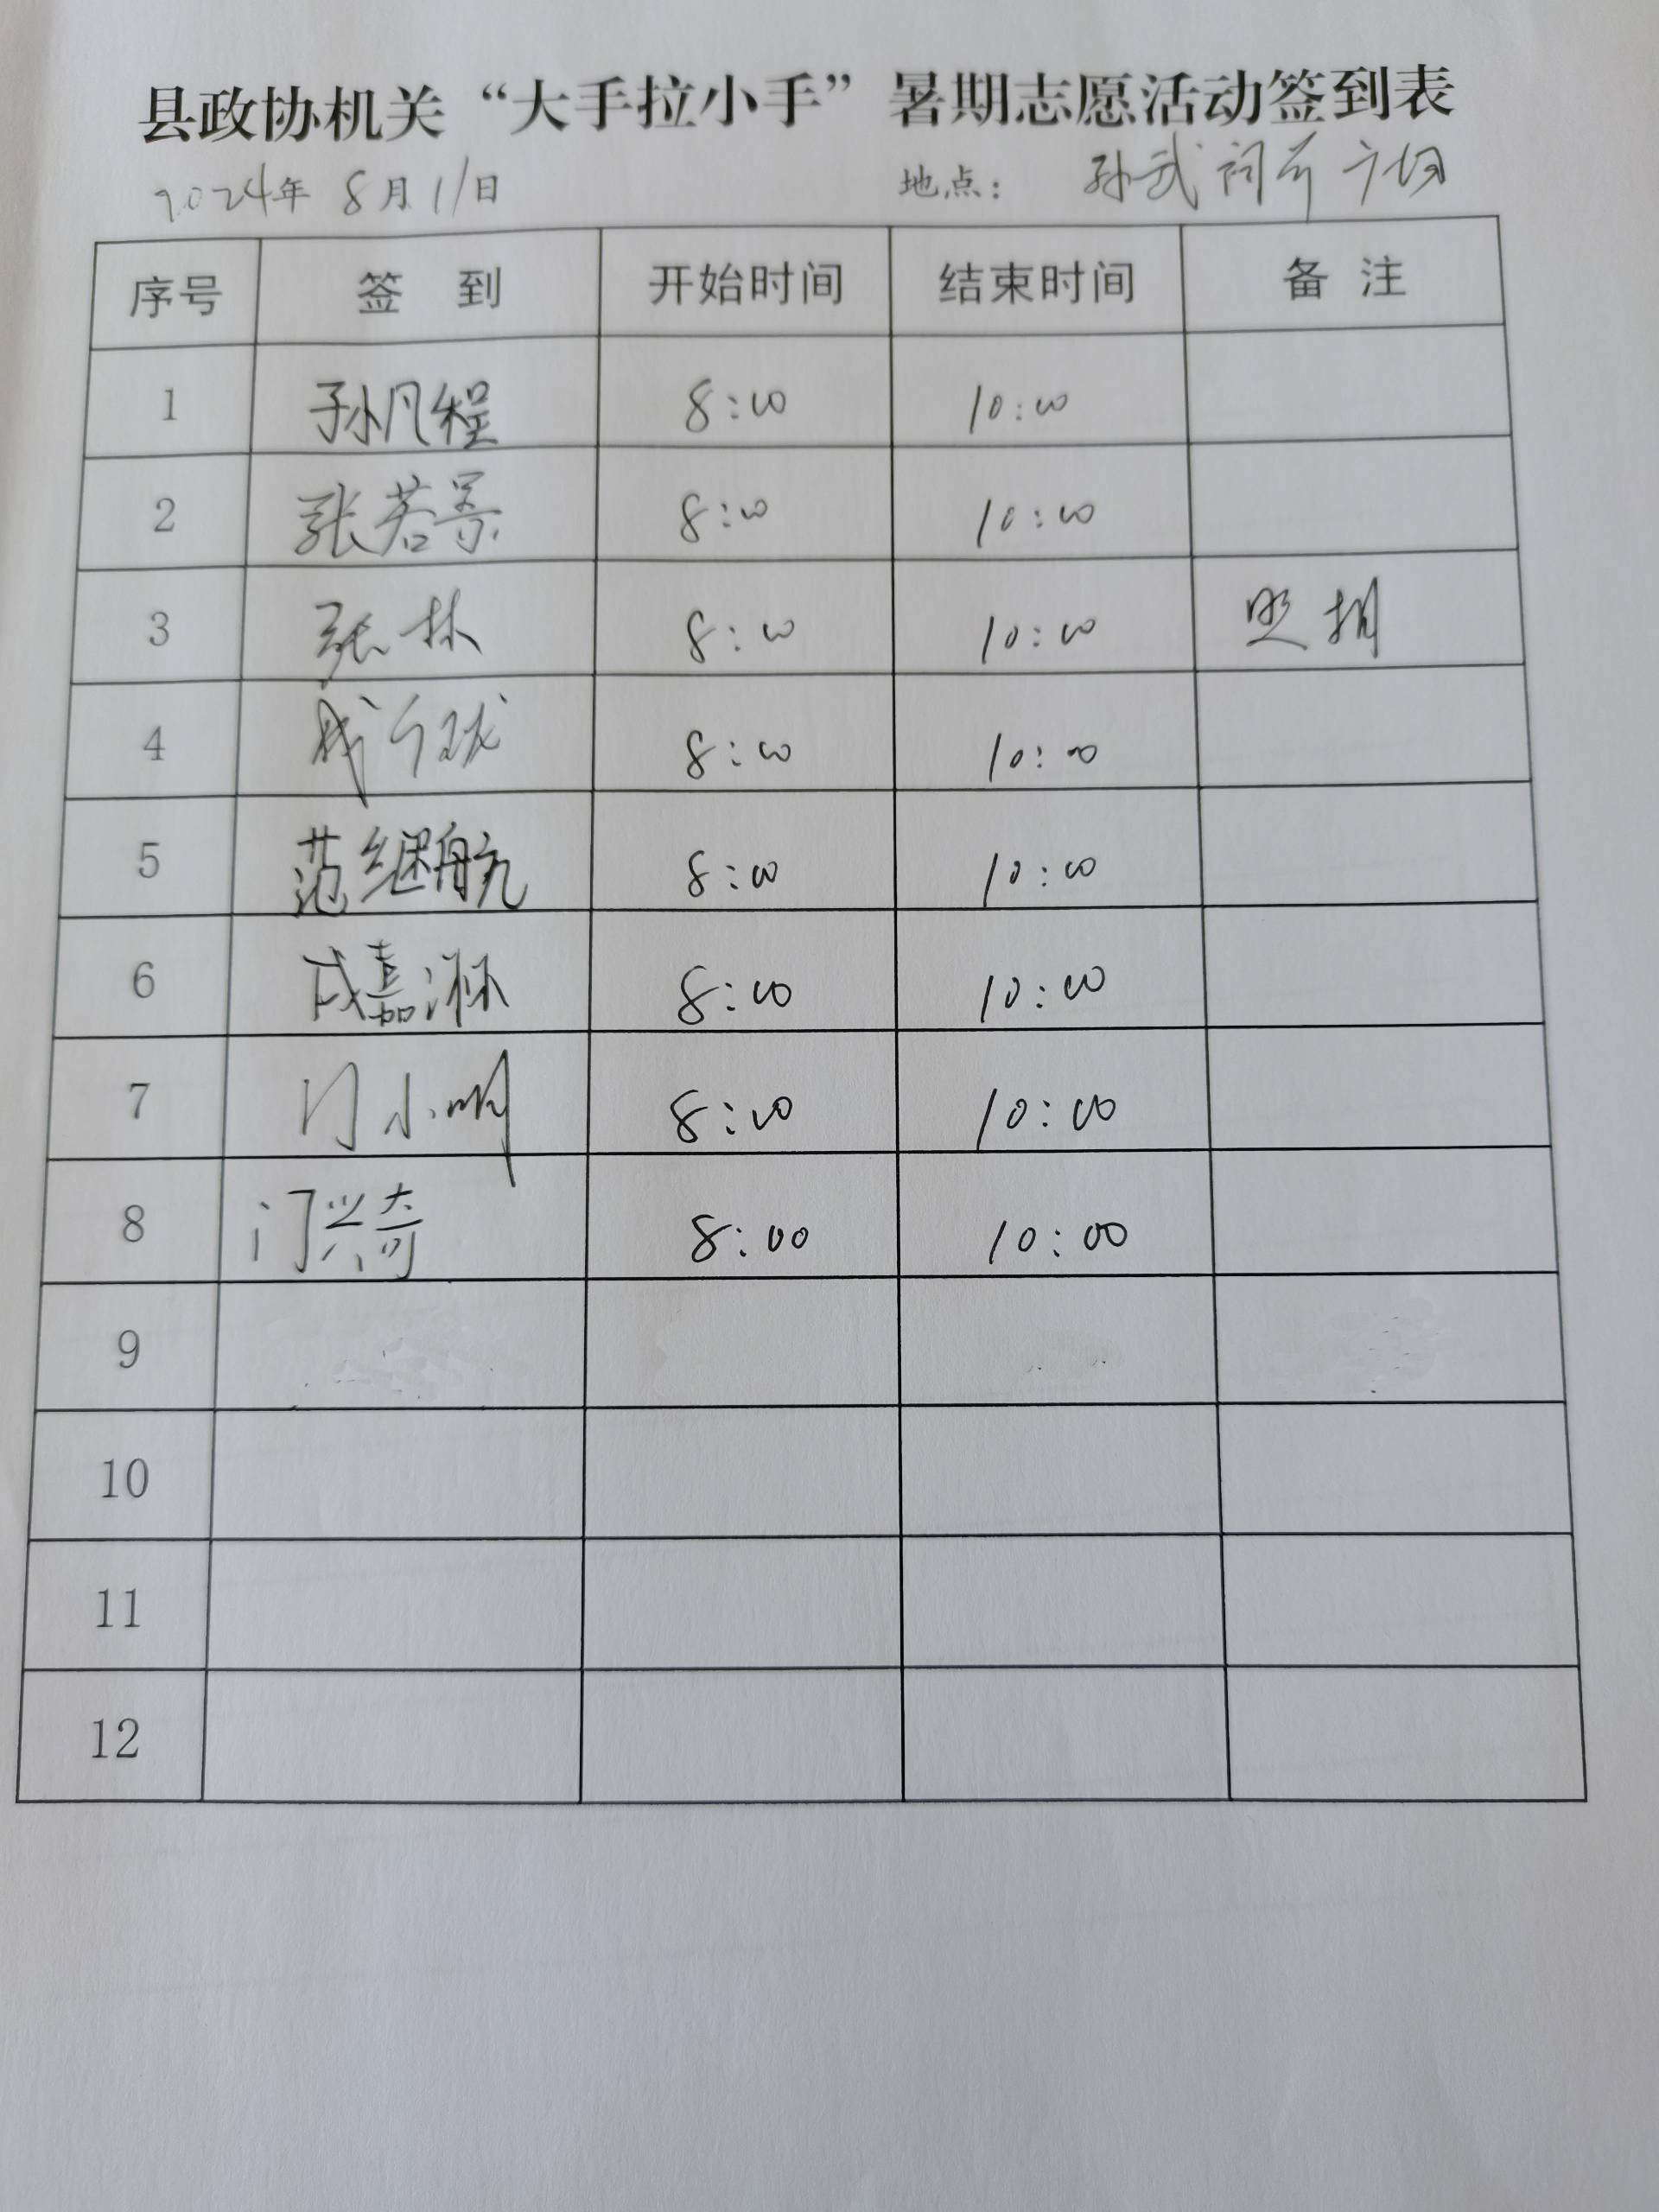 县政协机关“大手拉小手”暑期志愿活动签到表
2024年 8月11日 地点: 孙武祠前广场
序号 签 到 开始时间 结束时间 备 注
1 孙凡程 8:00 10:00
2 张若景 8:00 10:00
3 张林 8:00 10:00
4 8:00 10:00
5 范继航 8:00 10:00
6 嘉 8:00 10:00
7 门小明 8:00 10:00
8 门兴奇 8:00 10:00
9
10
11
12